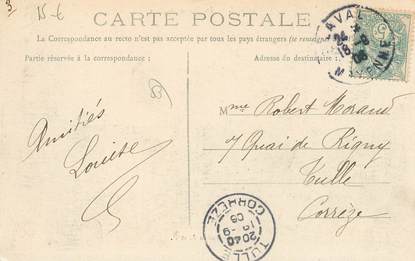 3
15-€
CARTE POSTALE
La Correspondance au recto n'est pas acceptée par tous les pays étrangers (se renseigner
Partie réservée à la correspondance
Adresse du destinataire
LAVAL
MAYENNE
5
Amitiés
Louise
Mme Robert Morand
7 Quai de Rigny
Tulle
Corrèze
TULLE
2040
CORREZE